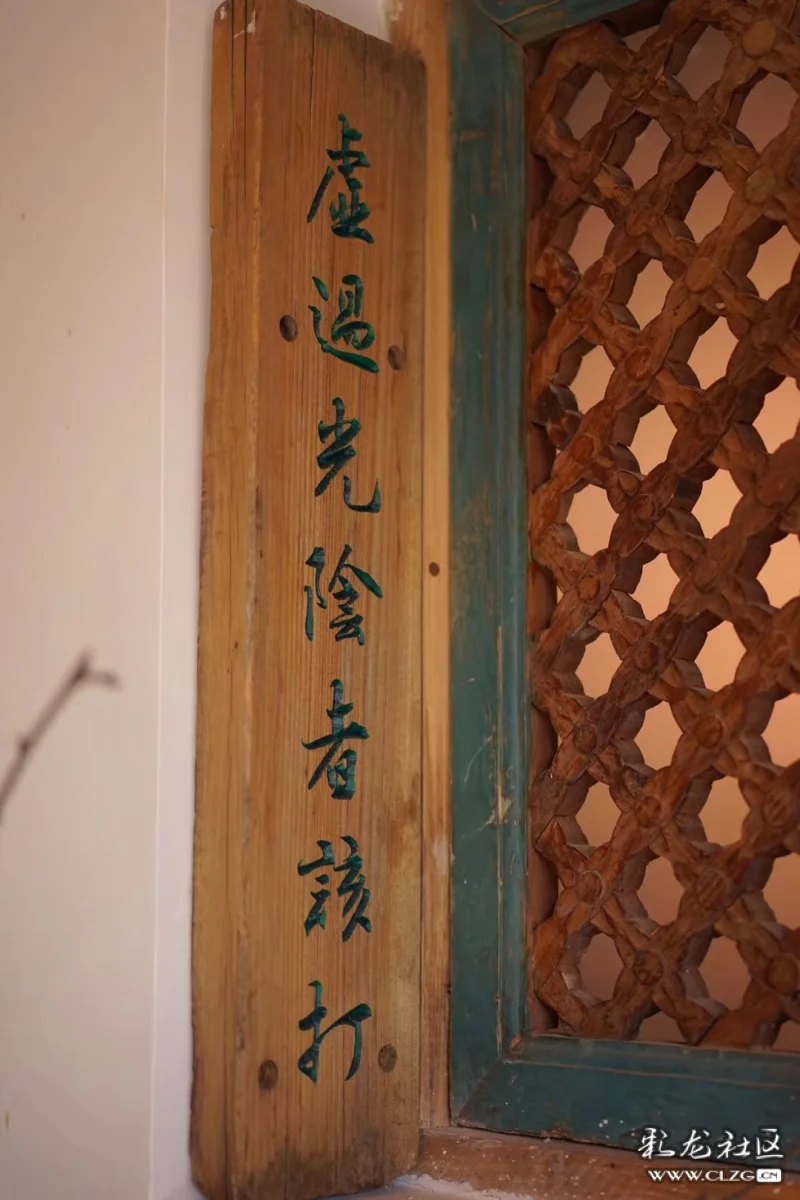 虛過光陰者該打
彩龙社区
WWW.CLZG.CN